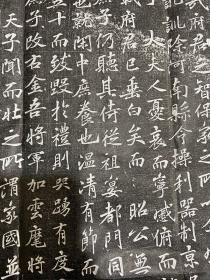 武府君之智保家之
訓徐河南縣令操利器制京
大夫人憂哀而寧戚備而
府君已垂白矣而昭公
子仍聽其侍從祖宴都門同
也就閑中展養也溫清有節而
五十而致毀於禮則哭踴有度
改右金吾將軍加雲麾將
天子聞而壯之所謂家國並